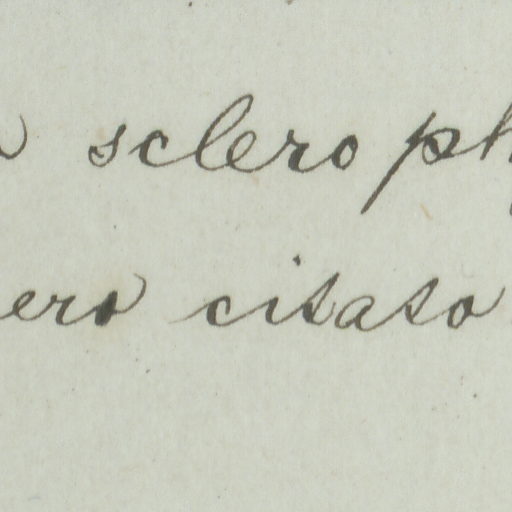 sclero ph
ero citato